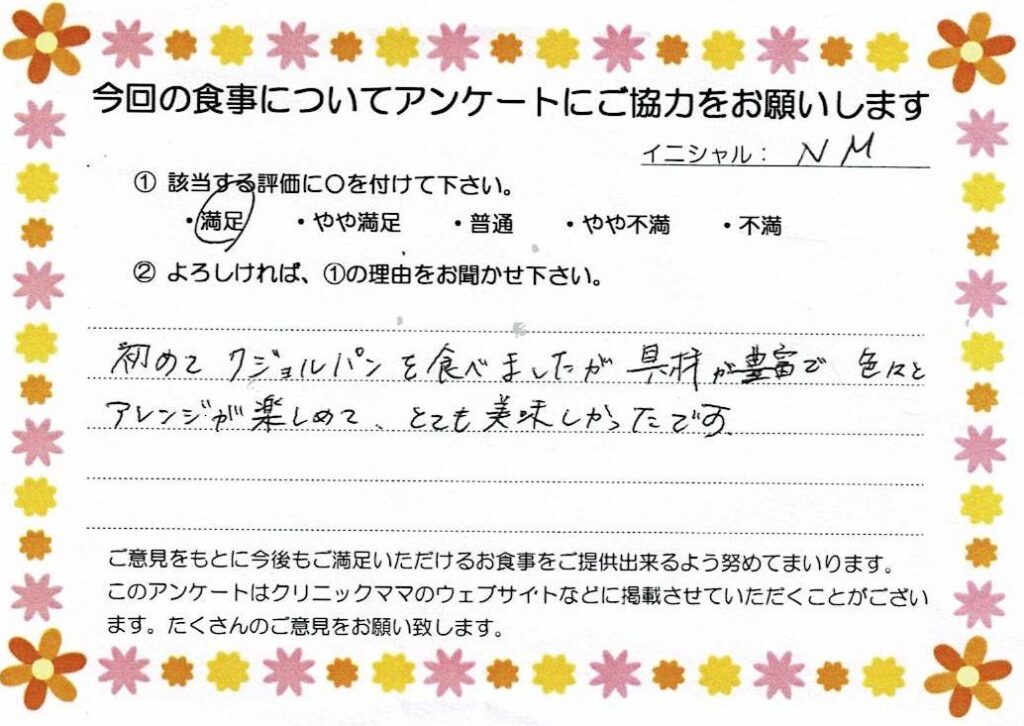 今回の食事についてアンケートにご協力をお願いします
イニシャル： N M
① 該当する評価に〇を付けて下さい。
・満足 ・やや満足 ・普通 ・やや不満 ・不満
② よろしければ、①の理由をお聞かせ下さい。
初めて クジョルパンを食べましたが 具材が豊富で 色々と
アレンジが楽しめて、とても美味しかったです。
ご意見をもとに今後もご満足いただけるお食事をご提供出来るよう努めてまいります。
このアンケートはクリニックママのウェブサイトなどに掲載させていただくことがござい
ます。たくさんのご意見をお願い致します。